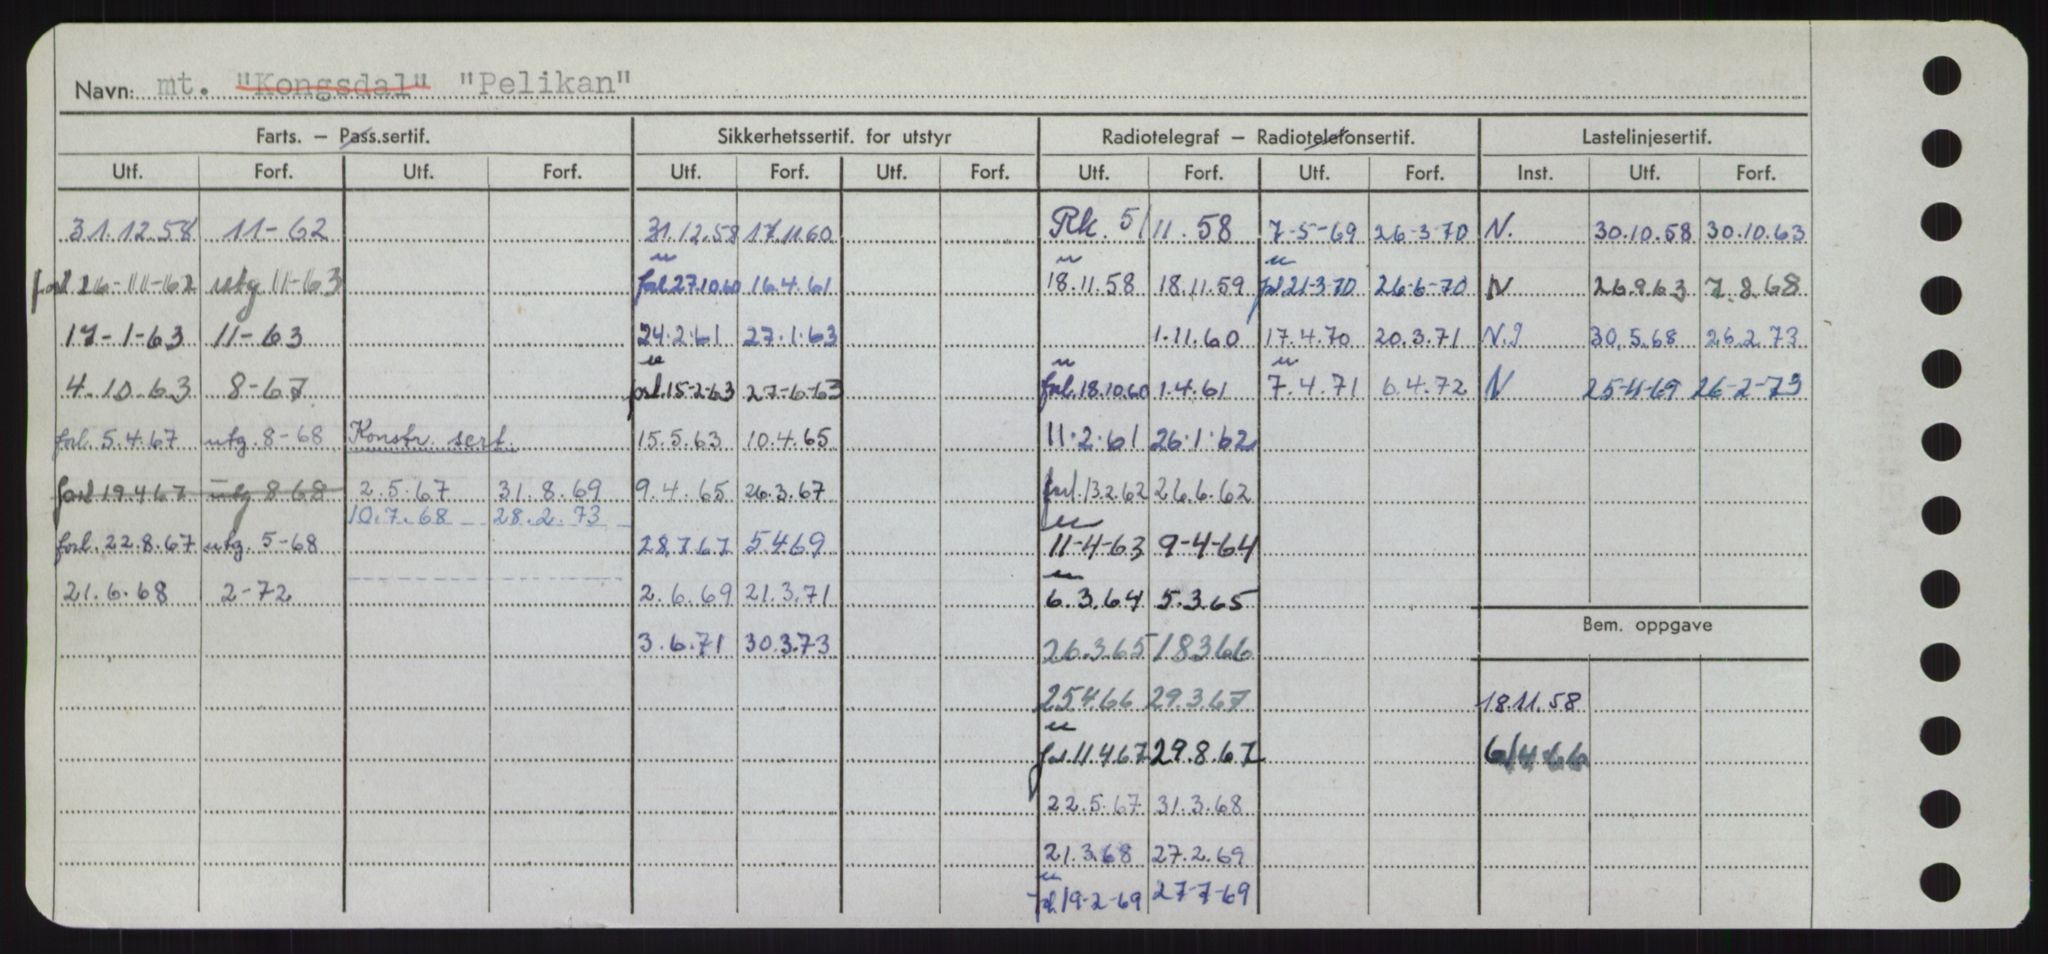 Navn: mt. "Kongsdal" "Pelikan"
Farts. – Pass.sertif. Sikkerhetssertif. for utstyr Radiotelegraf – Radiotelefonsertif. Lastelinjesertif.
Utf. Forf. Utf. Forf. Utf. Forf. Utf. Forf. Utf. Forf. Utf. Forf. Inst. Utf. Forf.
31.12.58 11-62 31.12.58 17.11.60 Rk. 5/11.58 7-5-69 26-3-70 N. 30.10.58 30.10.63
forl 26-11-62 utg 11-63 forl 27.10.60 16.4.61 18.11.58 18.11.59 forl 21-3-70 26-6-70 N 26.9.63 7.8.68
17-1-63 11-63 24.2.61 27.1.63 1.11.60 17.4.70 20.3.71 N.I 30.5.68 26.2.73
4.10.63 8-67 forl.15-2-63 27-6-63 forl.18.10.60 1.4.61 7.4.71 6.4.72 N 25-4-69 26-2-73
forl. 5.4.67 utg. 8-68 Konstr. sert. 15.5.63 10.4.65 11.2.61 26.1.62
forl 19.4.67 utg 8-68 2.5.67 31.8.69 9.4.65 26.3.67 forl.13.2.62 26.6.62
10.7.68 28.2.73
forl. 22.8.67 utg. 5-68 28.7.67 5.4.69 11-4-63 9-4-64
21.6.68 2-72 2.6.69 21.3.71 6.3.64 5.3.65
Bem. oppgave
3.6.71 30.3.73 26.3.65 18.3.66
25.4.66 29.3.67 18.11.58
forl.11.4.67 29.8.67 6/4-66
22.5.67 31.3.68
21.3.68 27.2.69
forl.19-2-69 27-7-69